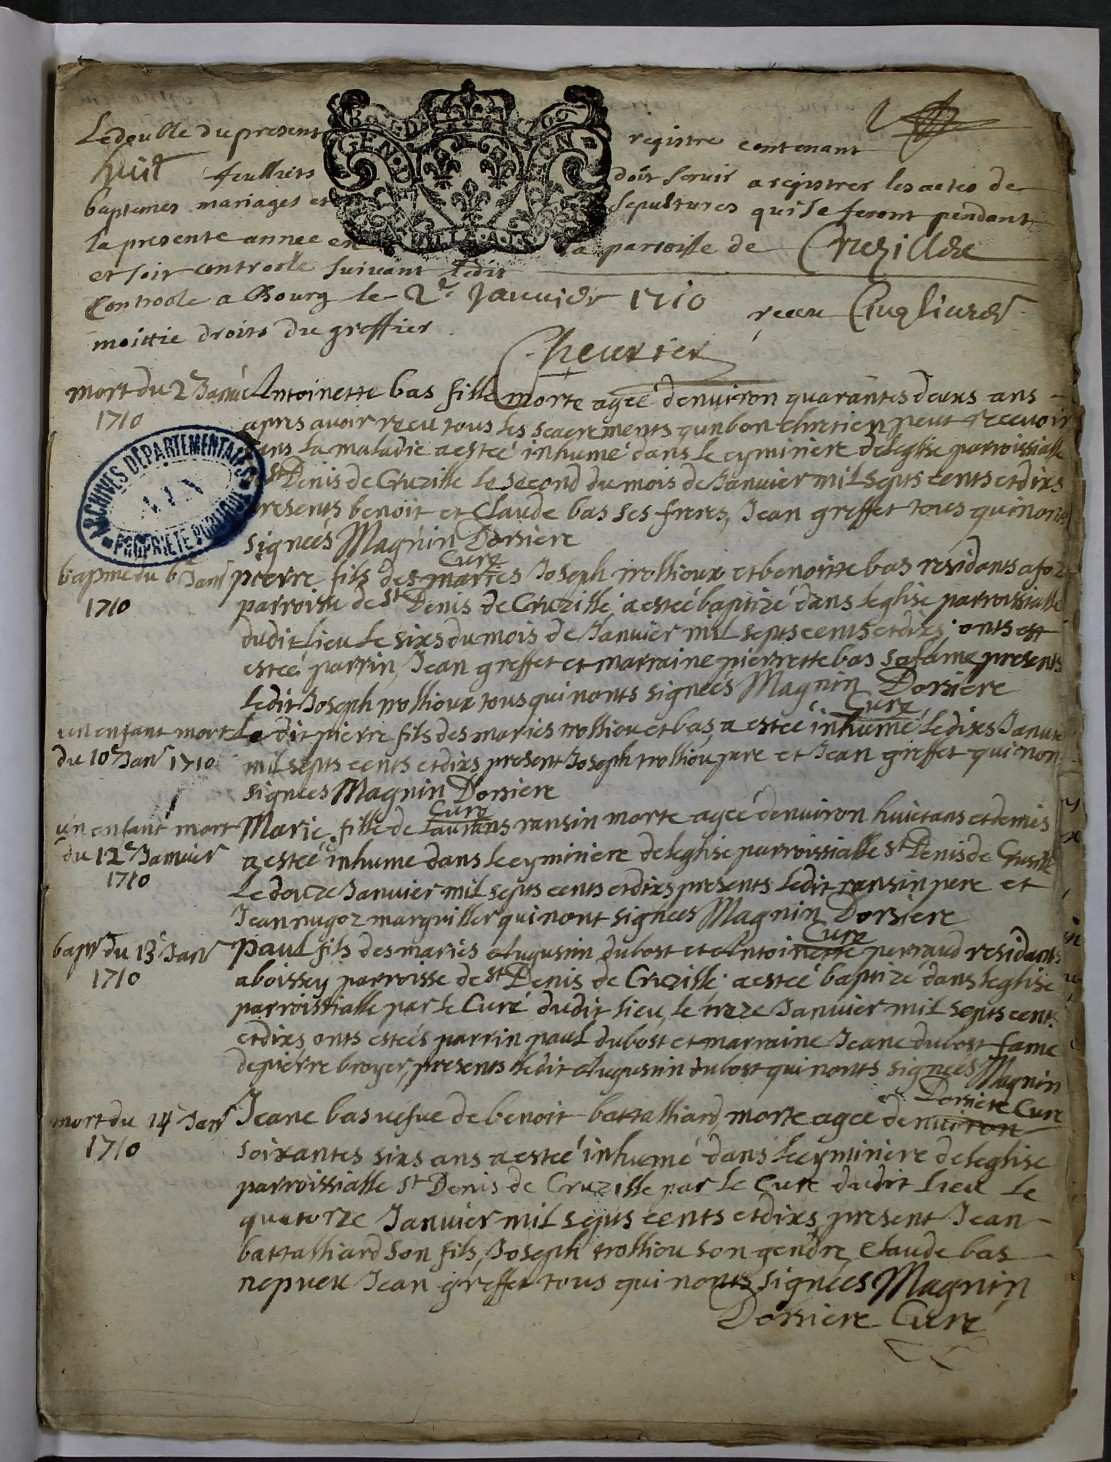 Le double du present registre contenant
huit feulliets doit servir a registrer les actes de
baptemes mariages et sepultures qui se feront pendant
la presente annee en la parroisse de Cruzille
et soit controole suivant ledit
Controole a Bourg le 2e Janvier 1710
moittie droits du greffier
receu
Cheurier
GEN
mort du 2 Janv
1710
Antoinette bas fille morte agéé denviron quarantes deuxs ans
apres avoir receu tous les sacrements qun bon chretien peut recevoir
dens la maladie a estéé inhumé dans le cyminiere de leglise parroissialle
St Denis de Cruzille le second du mois de Janvier mil septs cents et dixs
presents benoit et Claude bas ses freres, Jean greffet tous qui nonts
signéés Magnin Dorsiere
Curé
ARCHIVES DÉPARTEMENTALES
AIN
PROPRIÉTÉ PUBLIQUE
bapme du 6e Janv
1710
pierre fils des mariés Joseph trollioux et benoitte bas residants a
parroisse de St Denis de Cruzille a estéé baptizé dans leglise parroissialle
dudit Lieu le sixs du mois de Janvier mil septs cents et dixs onts
estéé parrin Jean greffet et marraine pierrette bas sa fame presents
Ledit Joseph trollioux tous qui nonts signéés Magnin Dorsiere
Curé
un enfant mort
du 10e Janv 1710
Le dit pierre fils des mariés trolliou et bas a estéé inhumé le dixs Janvie
mil septs cents et dixs present Joseph trolliou pere et Jean greffet qui non
signéés Magnin Dorsiere
Curé
un enfant mort
du 12e Janvier
1710
Marie fille de Laurans ransin morte agéé denviron huict ans et demis
a estéé inhumé dans le cyminiere de leglise parroissialle St Denis de Cruzille
Le douze Janvier mil septs cents et dixs presents ledit ransin pere et
Jean nugoz marguillier qui nont signéés Magnin Dorsiere
Curé
bapt du 13e Janv
1710
paul fils des mariés Augustin dubost et Antoinette perraud residants
a boissey parroisse de St Denis de Cruzille a estéé baptizé dans leglise
parroissialle par le Curé dudit lieu, le treze Janvier mil septs cents
et dixs onts estéés parrin paul dubost et marraine Jeane dubost fame
de pierre broyer, presents ledit Augustin dubost qui nonts signéés Magnin
Dorsiere Curé
mort du 14 Janv
1710
Jeane bas vefve de benoit battalliard morte agéé denviron
soixantes sixs ans a estéé inhumé dans le cyminiere de leglise
parroissialle St Denis de Cruzille par le Curé dudit lieu le
quatorze Janvier mil septs cents et dixs, present Jean
battalliard son fils, Joseph trolliou son gendre Claude bas
nepveu Jean greffet tous qui nonts signéés Magnin
Dorsiere Curé